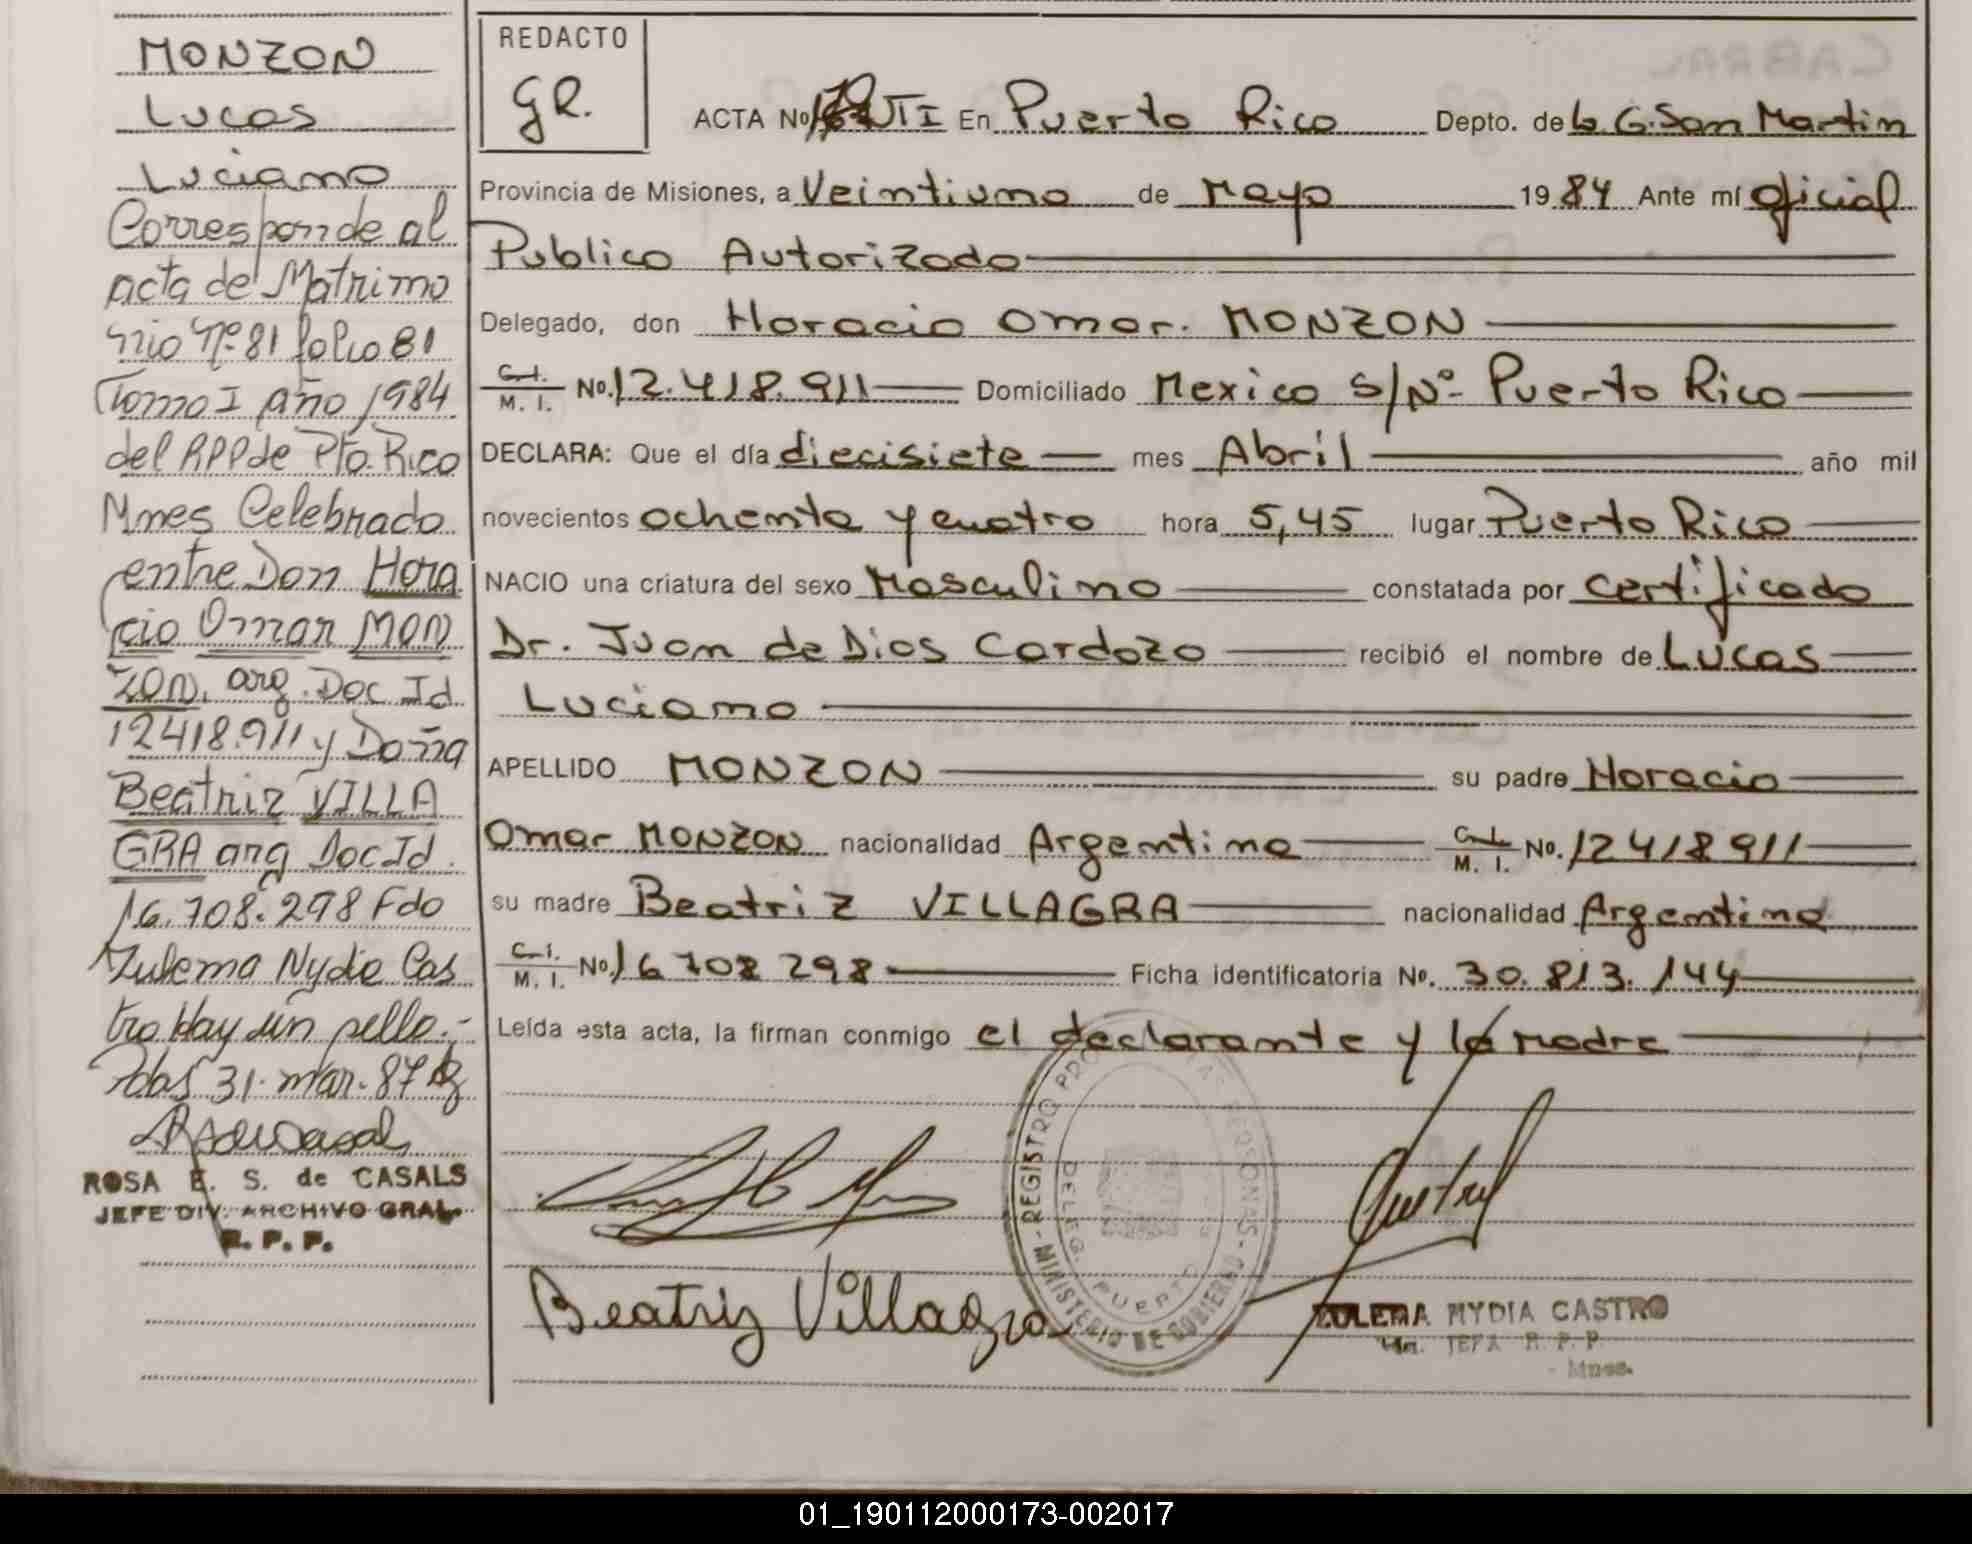 MONZON
Lucas
Luciano
Corresponde al
acta de Matrimo
nio Nº 81 folio 81
Tomo I año 1984
del RPP de Pto. Rico
Mnes Celebrado
entre Don Hora
cio Omar MON
ZON, arg. Doc Id
12418.911 y Doña
Beatriz VILLA
GRA arg Doc Id.
16.708.298 Fdo
Zulema Nydia Cas
tro Hay un sello.-
Pdas 31. mar. 87
ROSA E. S. de CASALS
JEFE DIV. ARCHIVO GRAL.
R. P. P.
REDACTO
GR.
ACTA No TI En Puerto Rico Depto. de Lb. G. San Martin
Provincia de Misiones, a Veintiuno de Mayo 19 84 Ante mí Oficial
Publico Autorizado
Delegado, don Horacio Omar. MONZON
C.I. M. I. No. 12.418.911 Domiciliado Mexico S/Nº- Puerto Rico
DECLARA: Que el día diecisiete mes Abril año mil
novecientos ochenta y cuatro hora 5,45 lugar Puerto Rico
NACIO una criatura del sexo Masculino constatada por Certificado
Dr. Juan de Dios Cardozo recibió el nombre de Lucas
Luciano
APELLIDO MONZON su padre Horacio
Omar MONZON nacionalidad Argentina C.I. M. I. No. 12418911
su madre Beatriz VILLAGRA nacionalidad Argentina
C.I. M. I. No. 16708298 Ficha identificatoria No. 30.813.144
Leída esta acta, la firman conmigo el declarante y la Madre
Beatriz Villagra
- REGISTRO PRO PERSONAS -
MINISTERIO DE GOBIERNO
DELEG. PUERTO
ZULEMA NYDIA CASTRO
JEFA R. P. P.
- Mnes.
01_190112000173-002017